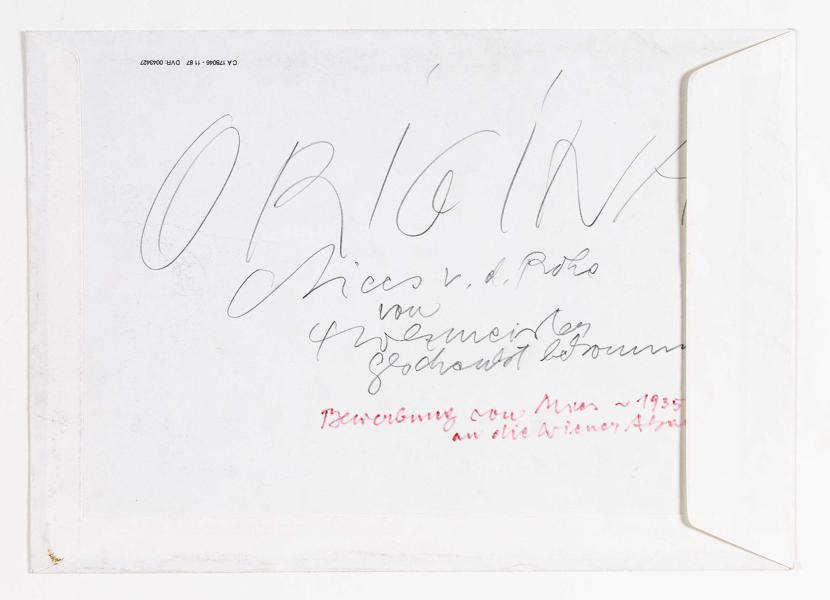 CA 178046 - 11 87 DVR: 0043427
ORIGINA
Mies v. d. Rohe
von
Holzmeister
geschenkt bekomm
Bewerbung von Mies ~ 1935
an die Wiener Aka